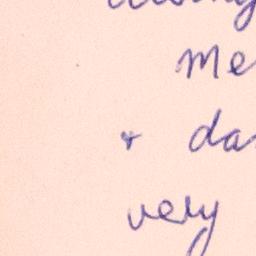 me
& da
very